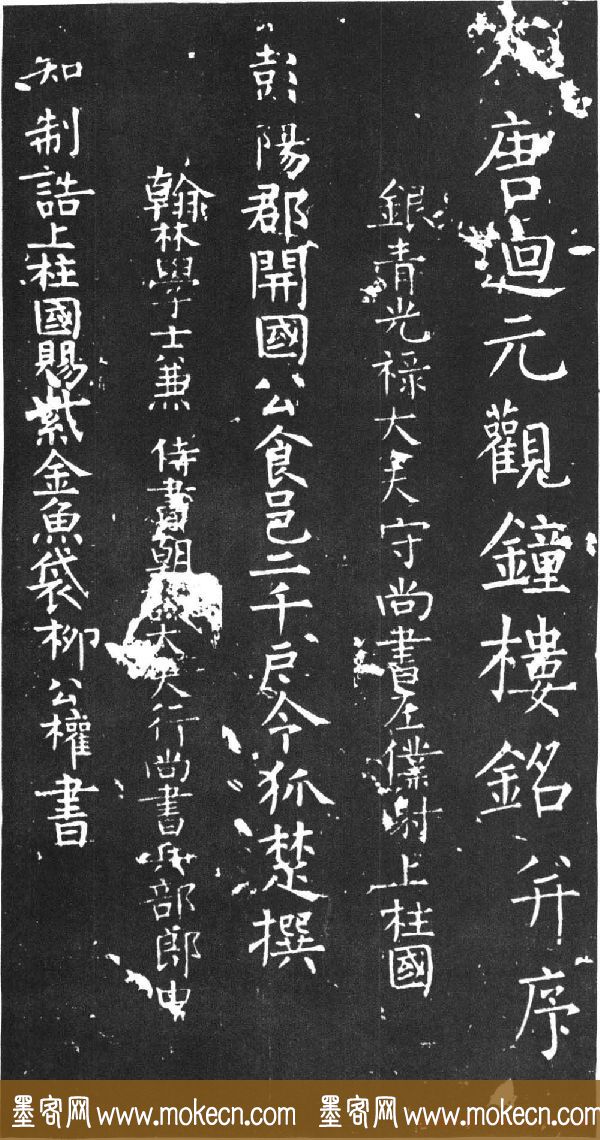 大唐迴元觀鐘樓銘并序
銀青光祿大夫守尚書左僕射上柱國
彭陽郡開國公食邑二千戶令狐楚撰
翰林學士兼侍書朝議大夫行尚書兵部郎中
知制誥上柱國賜紫金魚袋柳公權書
墨客网 www.mokecn.com 墨客网 www.mokecn.com